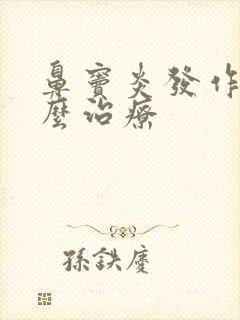 鼻竇炎發作
麼治療
孫鉄慶